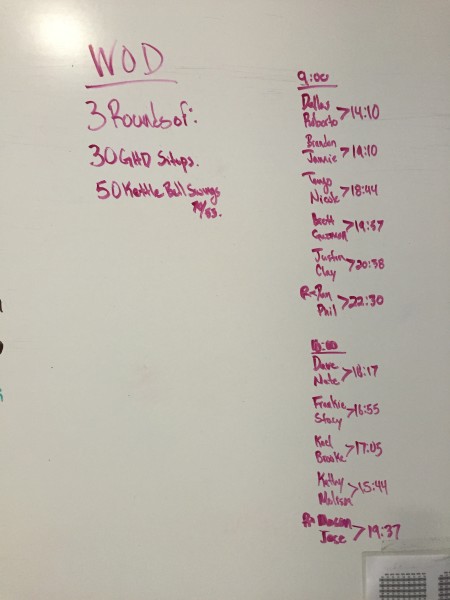 WOD
3 Rounds of:
30 GHD Situps.
50 Kettle Bell Swings
70/53.
9:00
Dallas
Roberto >14:10
Brandon
Jannie >19:10
Tango
Nicole >18:44
Brett
Guzman >19:57
Justin
Clay >20:38
Phil >22:30
10:00
Dave
Nate >18:17
Frankie
Stacy >16:55
Karl
Brooke >17:05
Kathy
Melissa >15:44
Jose >19:37